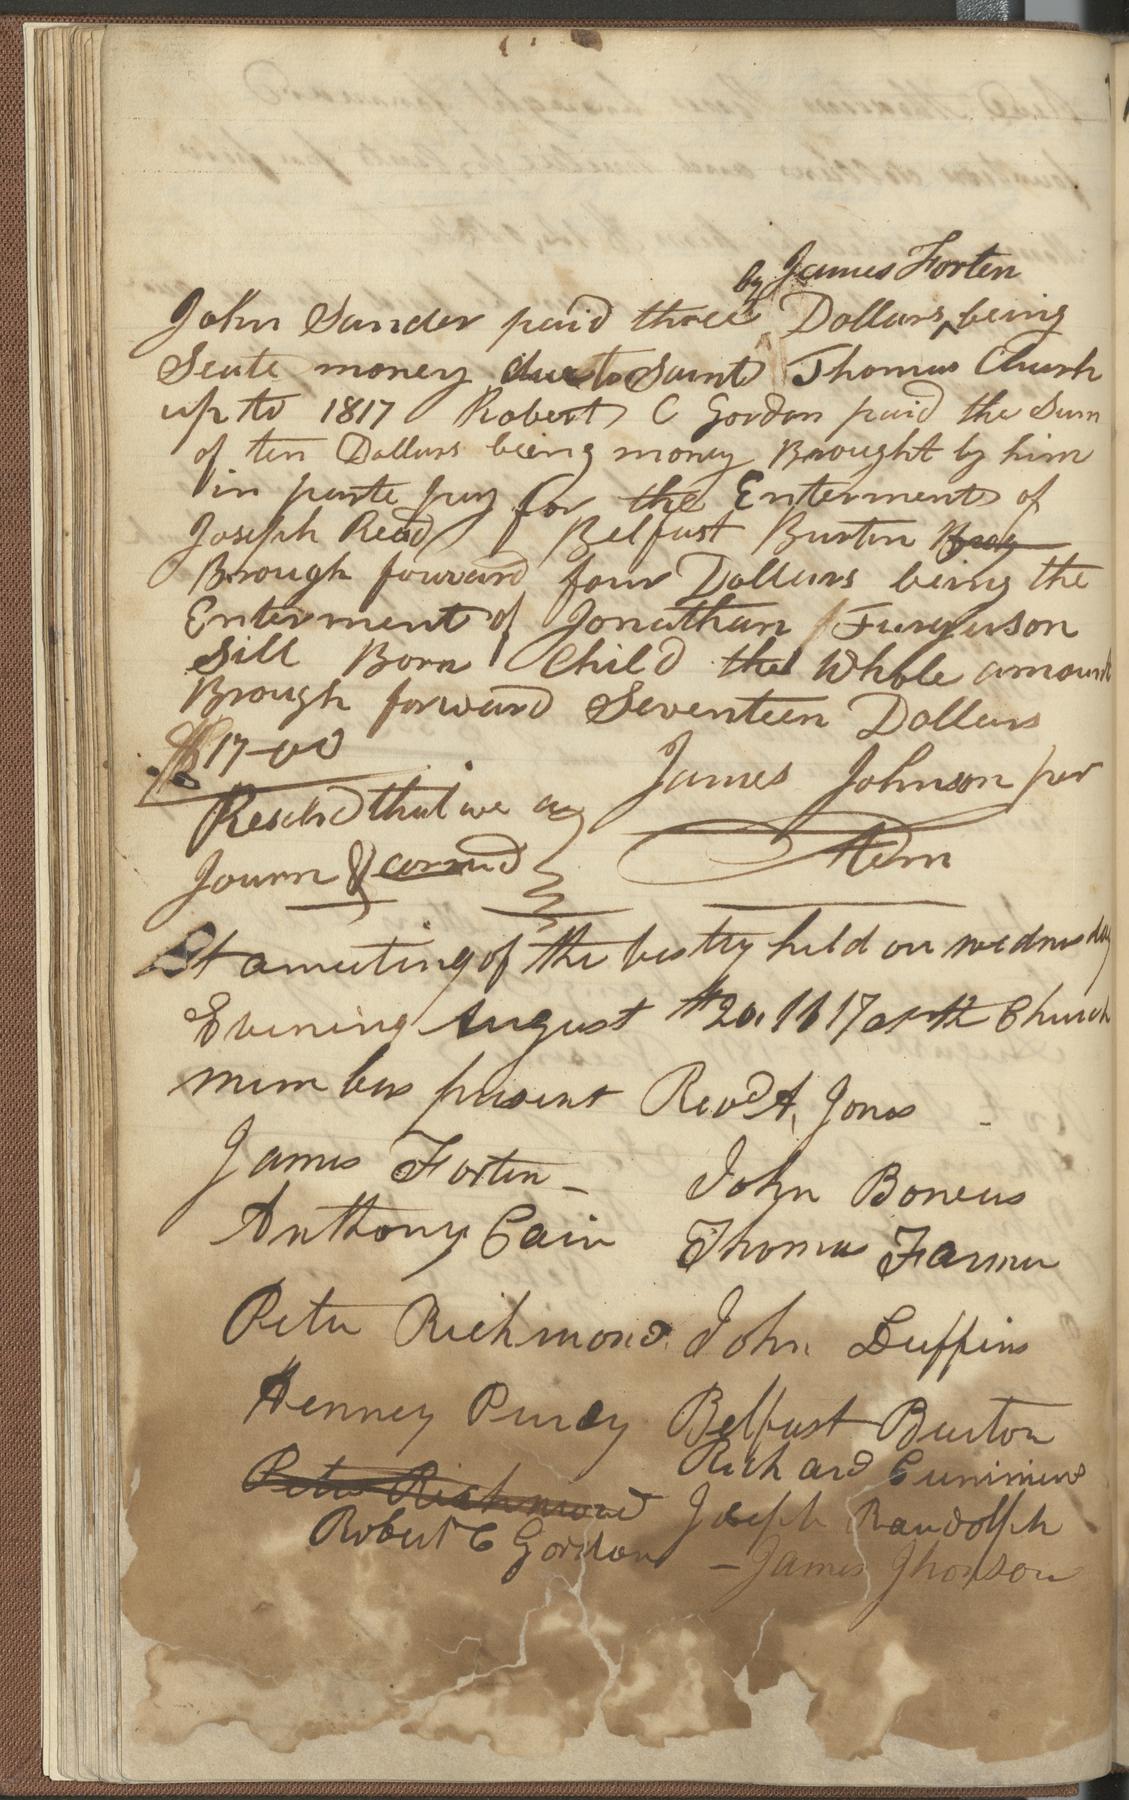 by James Forten
John Sander paid three Dollars, being
Seate money due to Saint Thomas Church
up to 1817 Robert C Gordon paid the Sum
of ten Dollars being money Brought by him
in parte pay for the Enterments of
Joseph Read Belfast Burton Brog
Brough forward four Dollars being the
Enterment of Jonathan Furguson
Sill Born Child the Whole amount
Brough forward Seventeen Dollars
$17-00
James Johnson per
Resolvd that we ay
Journ & carried
At a meeting of the vestry held on wednesday
Evening August 20. 1817 at the Church
mem bers present Revd A, Jones
James Forten - John Boweus
Anthony Cain Thomas Farmer
Peter Richmond John Duffins
Henney Purdy Belfast Burton
Richard Cummins
Peter Richmond Joseph Randolph
Robert C Gordon - James Jhonson